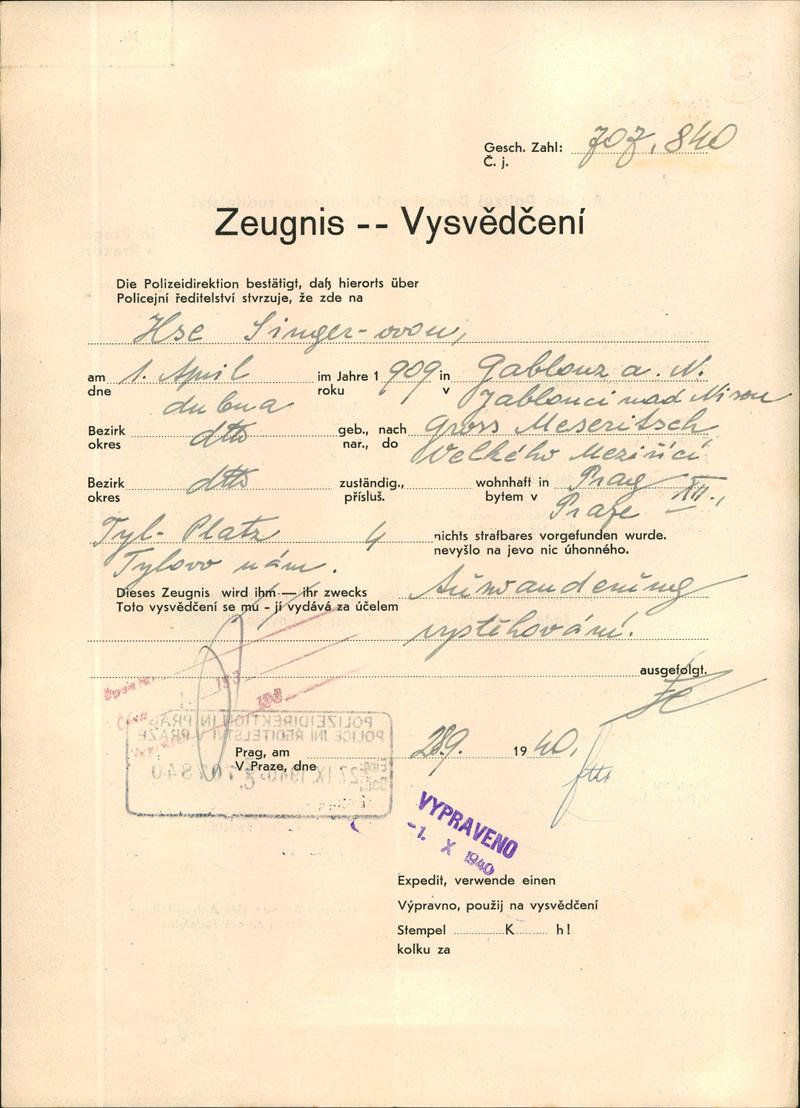 Gesch. Zahl: 707.840
Č. j.
Zeugnis -- Vysvědčení
Die Polizeidirektion bestätigt, daß hierorts über
Policejní ředitelství stvrzuje, že zde na
Ilse Singer-ovou,
am 1. April im Jahre 1909 in Gablonz a. N.
dne dubna roku v Jablonci nad Nisou
Bezirk dtto geb., nach Gross Meseritsch
okres nar., do Velkého Meziříčí
Bezirk dtto zuständig., wohnhaft in Prag XII.,
okres přísluš. bytem v Praze
Tyl-Platz 4 nichts strafbares vorgefunden wurde.
Tylovo nám. nevyšlo na jevo nic úhonného.
Dieses Zeugnis wird ihm — ihr zwecks Auswanderung
Toto vysvědčení se mu - jí vydává za účelem
vystěhování.
ausgefolgt.
POLIZEIDIREKTION IN PRAG
POLICEJNÍ ŘEDITELSTVÍ V PRAZE
27. IX. 1940 707840
Prag, am 28.9. 1940,
V Praze, dne
VYPRAVENO
-1. X 1940
Expedit, verwende einen
Výpravno, použij na vysvědčení
Stempel K h!
kolku za